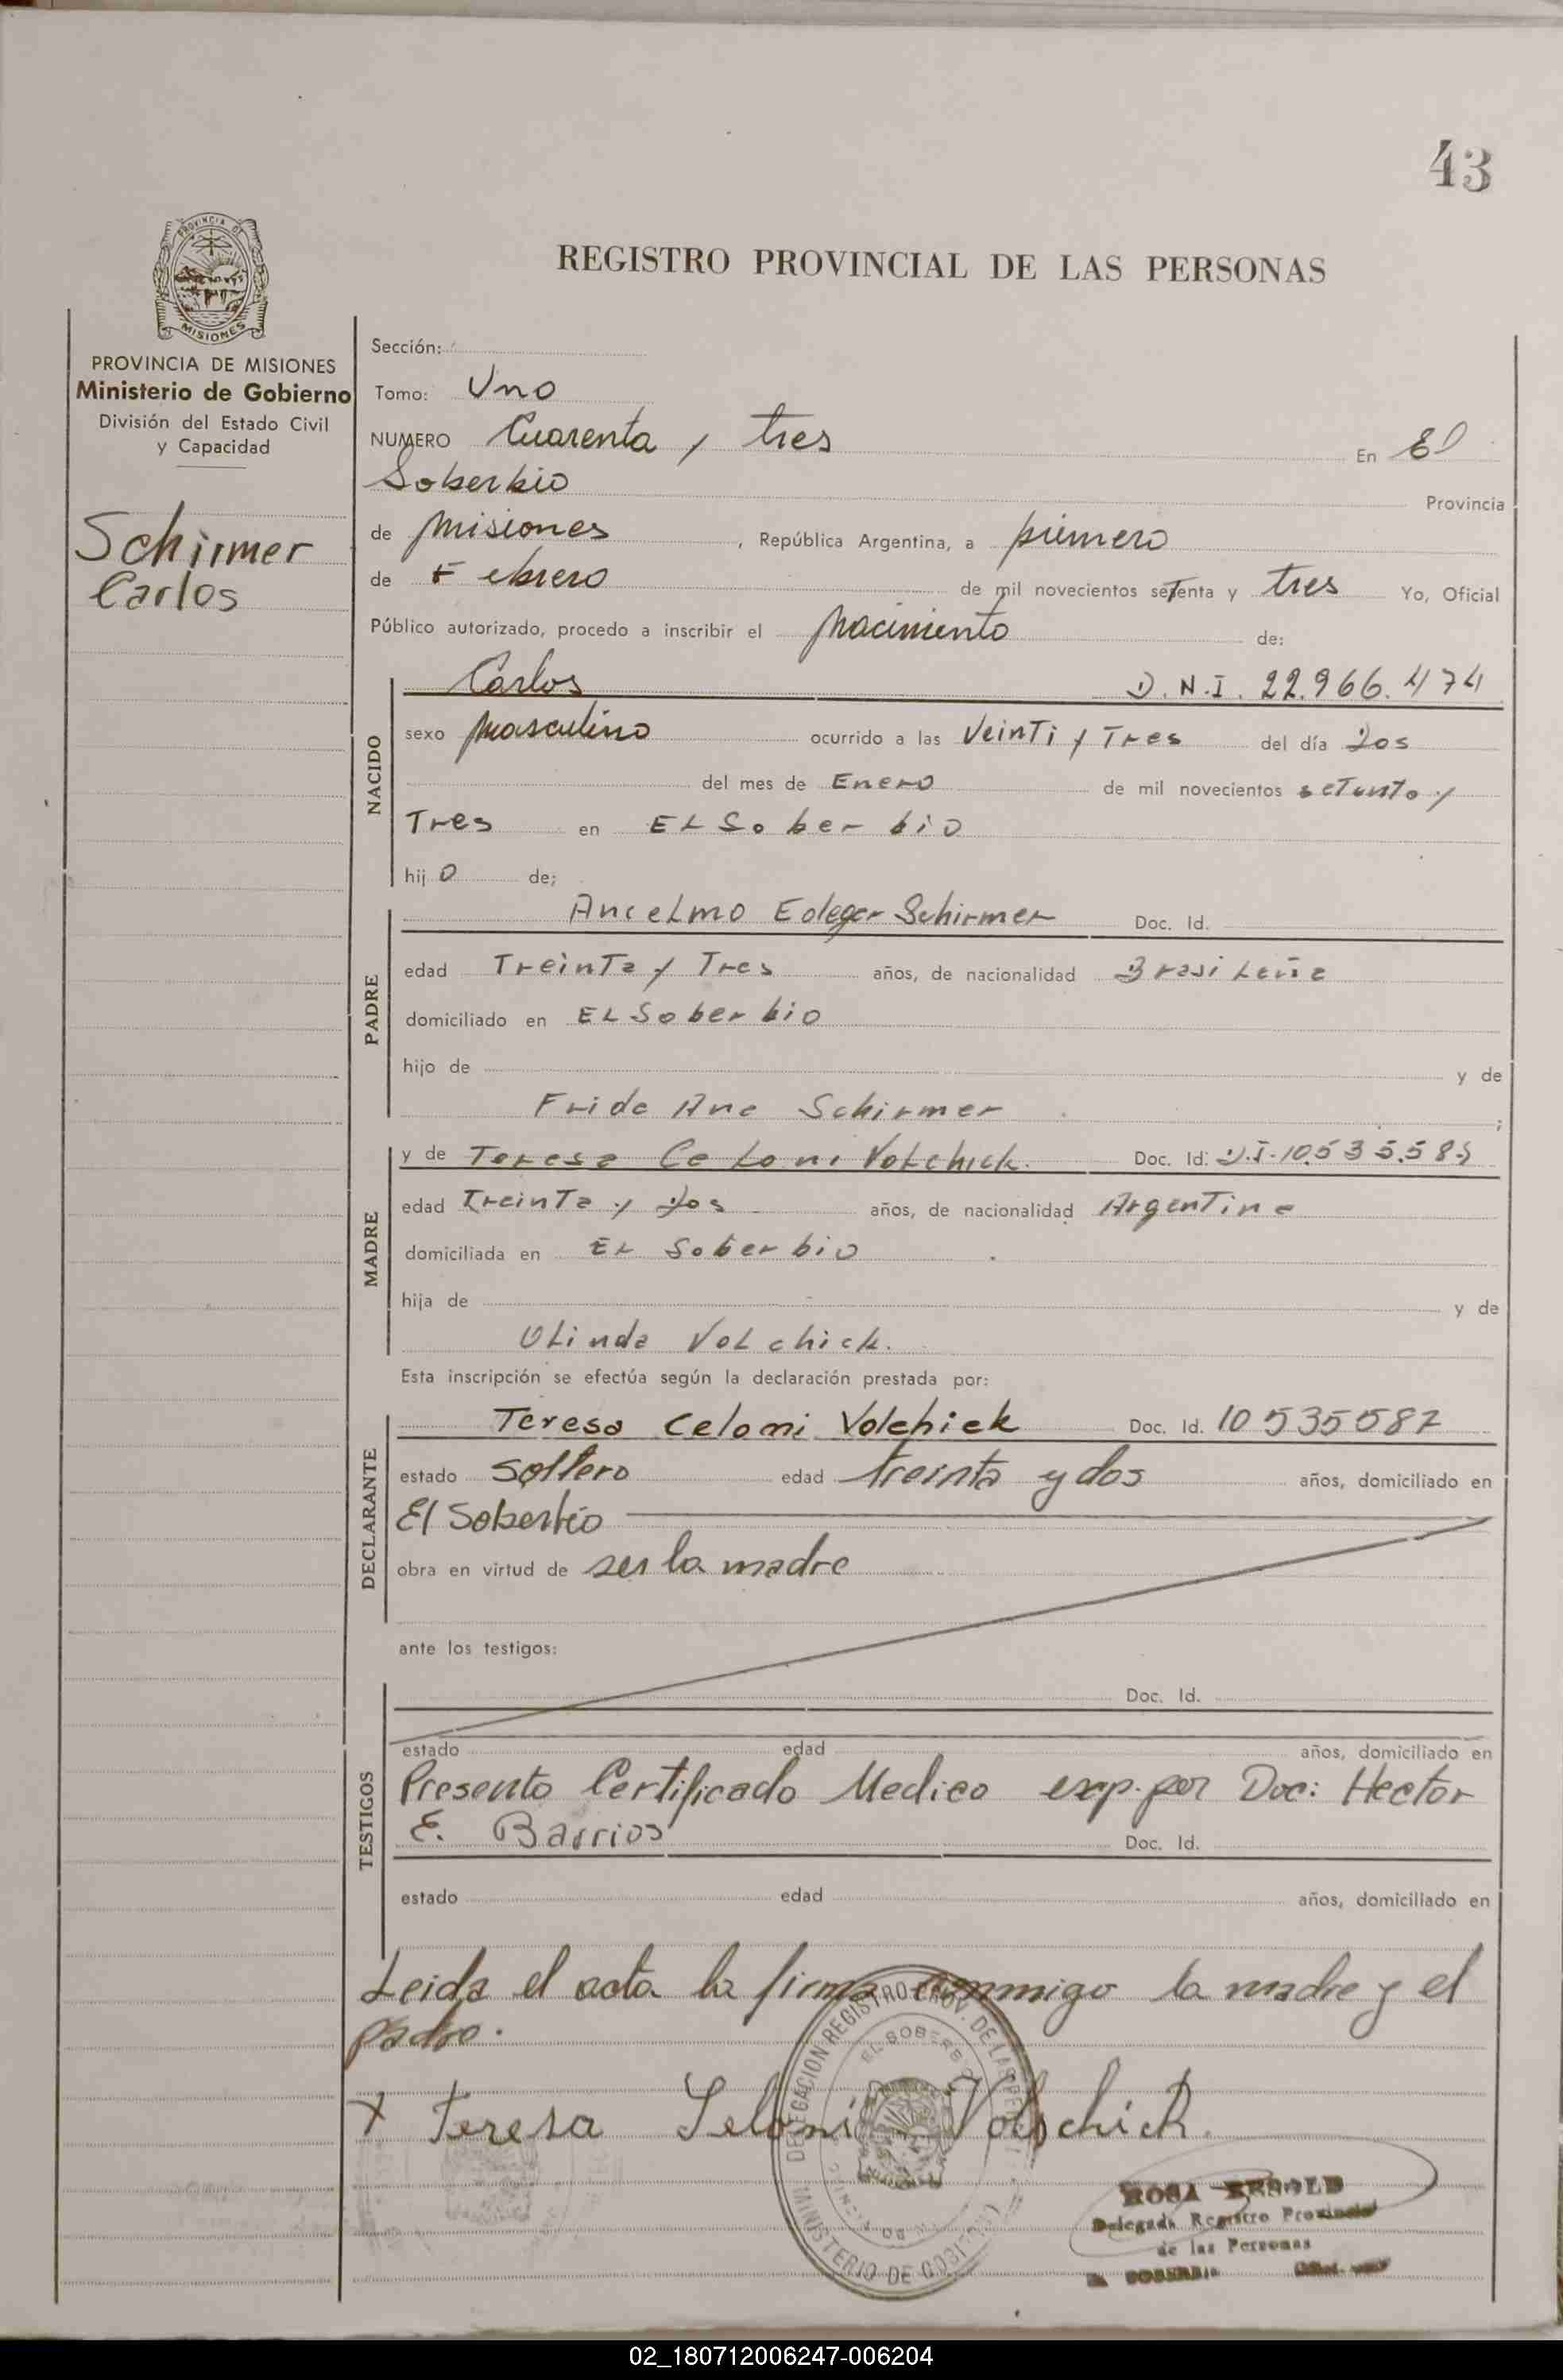 43
PROVINCIA DE
MISIONES
REGISTRO PROVINCIAL DE LAS PERSONAS
PROVINCIA DE MISIONES
Ministerio de Gobierno
División del Estado Civil
y Capacidad
Schirmer
Carlos
Sección:
Tomo: Uno
NUMERO Cuarenta y tres En El
Soberbio Provincia
de Misiones, República Argentina, a primero
de Febrero de mil novecientos setenta y tres Yo, Oficial
Público autorizado, procedo a inscribir el Nacimiento de:
NACIDO
Carlos D.N.I. 22.966.474
sexo Masculino ocurrido a las Veinti y Tres del día Dos
del mes de Enero de mil novecientos setenta y
Tres en EL Soberbio
hijo de;
PADRE
Ancelmo Edegar Schirmer Doc. Id.
edad Treinta y Tres años, de nacionalidad Brasileña
domiciliado en EL Soberbio
hijo de y de
Frida Ana Schirmer ;
MADRE
y de Teresa Celoni Volchick. Doc. Id. D.I. 10.535.58
edad Treinta y Dos años, de nacionalidad Argentina
domiciliada en EL Soberbio
hija de y de
Olinda Volchick.
Esta inscripción se efectúa según la declaración prestada por:
DECLARANTE
Teresa Celoni Volchick Doc. Id. 10535587
estado soltero edad treinta y dos años, domiciliado en
El Soberbio
obra en virtud de ser la madre
ante los testigos:
TESTIGOS
Doc. Id.
estado edad años, domiciliado en
Presento Certificado Medico exp. por Doc: Hector
E. Barrios Doc. Id.
estado edad años, domiciliado en
Leida el acta la firma conmigo la madre y el
padre.
x Teresa Seloni Volschick
DELEGACION REGISTRO PROV. DE LAS PER
EL SOBERBIO
MINISTERIO DE GOBIERNO
ROSA
Delegada Registro Provincial
de las Personas
EL SOBERBIO
02_180712006247-006204